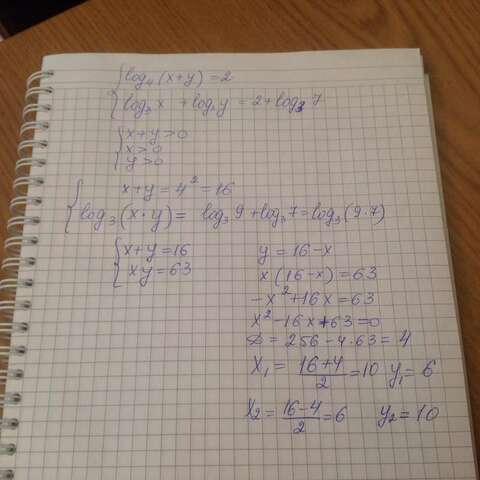 { log₄(x+y) = 2
{ log₃x + log₃y = 2 + log₃7
{ x+y>0
{ x>0
{ y>0
{ x+y = 4² = 16
{ log₃(x·y) = log₃9 + log₃7 = log₃(9·7)
{ x+y = 16
{ xy = 63
y = 16-x
x(16-x) = 63
-x²+16x = 63
x²-16x+63=0
D = 256-4·63 = 4
x₁ = (16+4)/2 = 10 y₁ = 6
x₂ = (16-4)/2 = 6 y₂ = 10